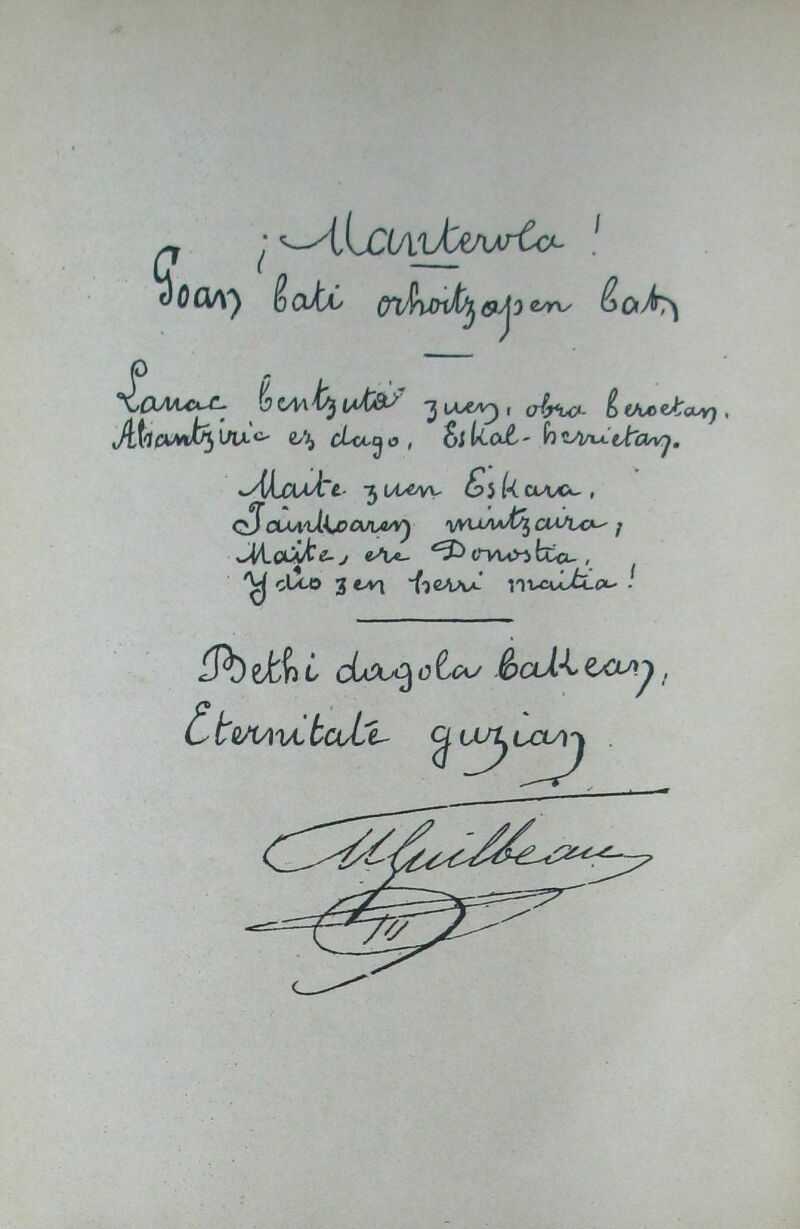 ¡Manterola!
Goan bati orhoitzapen bat,
Lanac bentzuta zuen, obra beroetan.
Ahantziric ez dago, Eskal-herrietan.
Maite zuen Eskara,
Jainkoaren mintzaira;
Maite, ere Donostia,
Ydio zen herri maitia!
Bethi dagola bakean,
Eternitate guzian
M Guilbeau